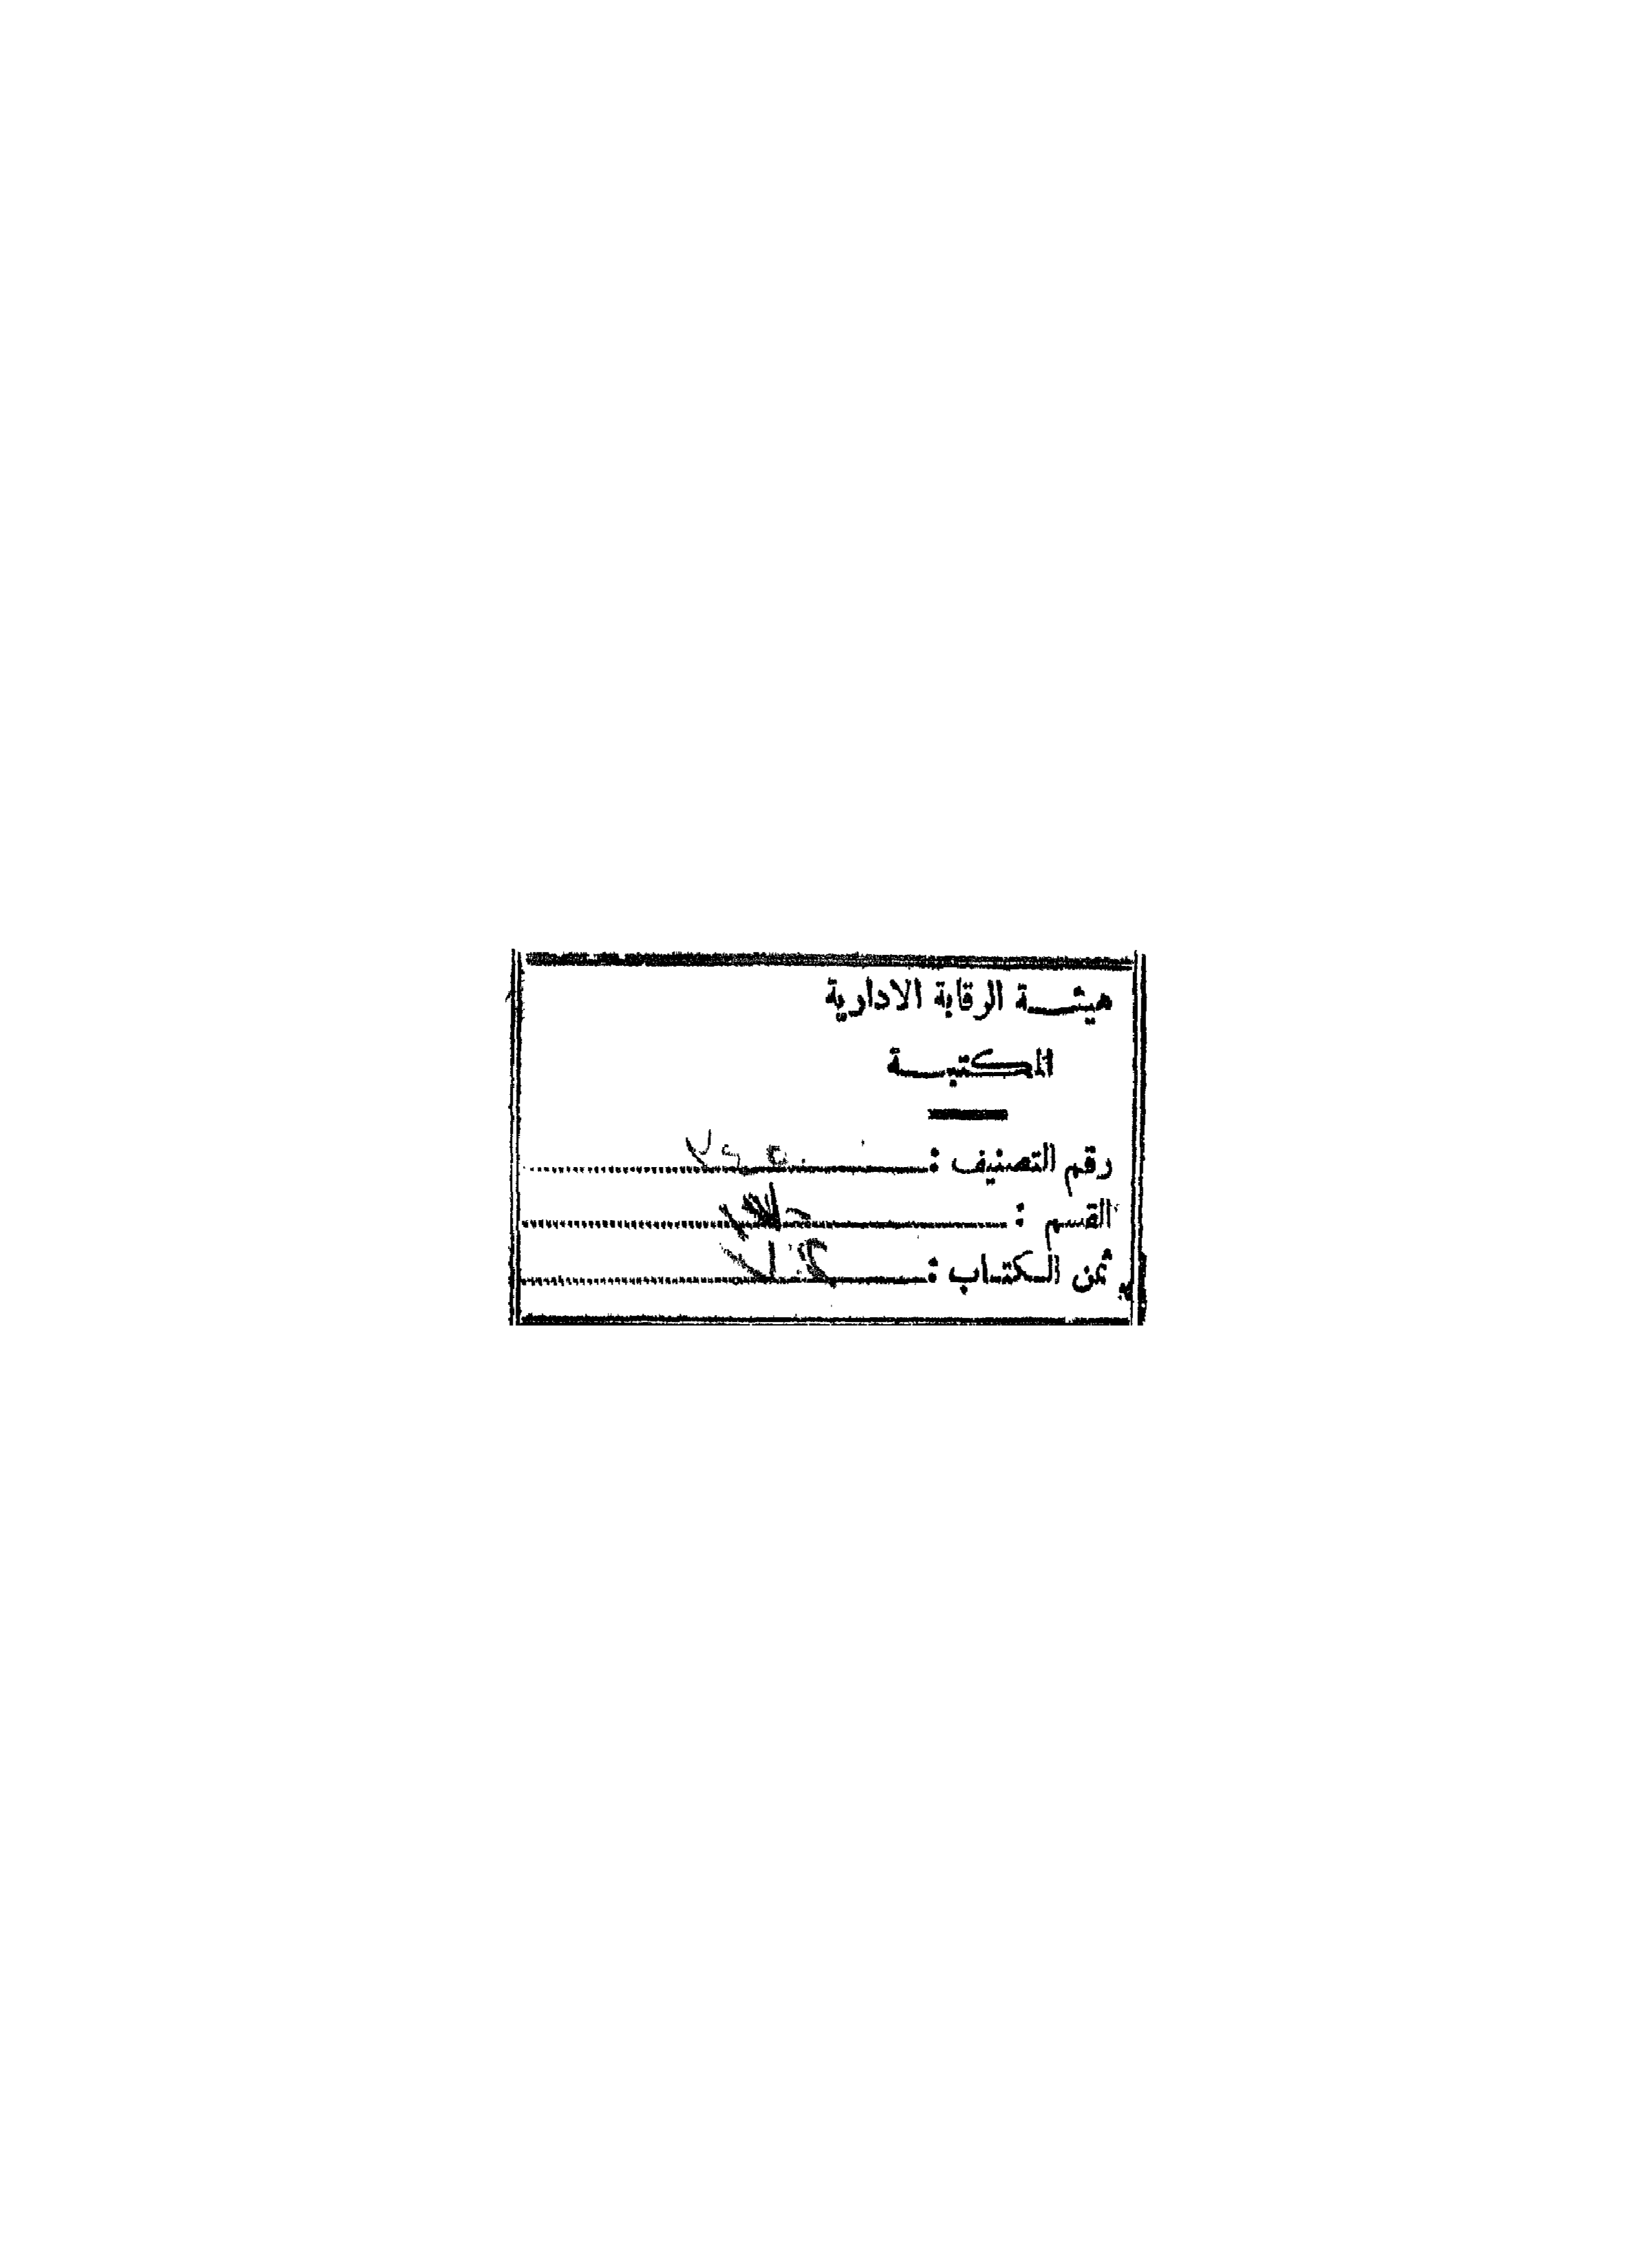 هيئة الرقابة الادارية
المكتبة
رقم التصنيف :
القسم :
ثمن الكتاب :